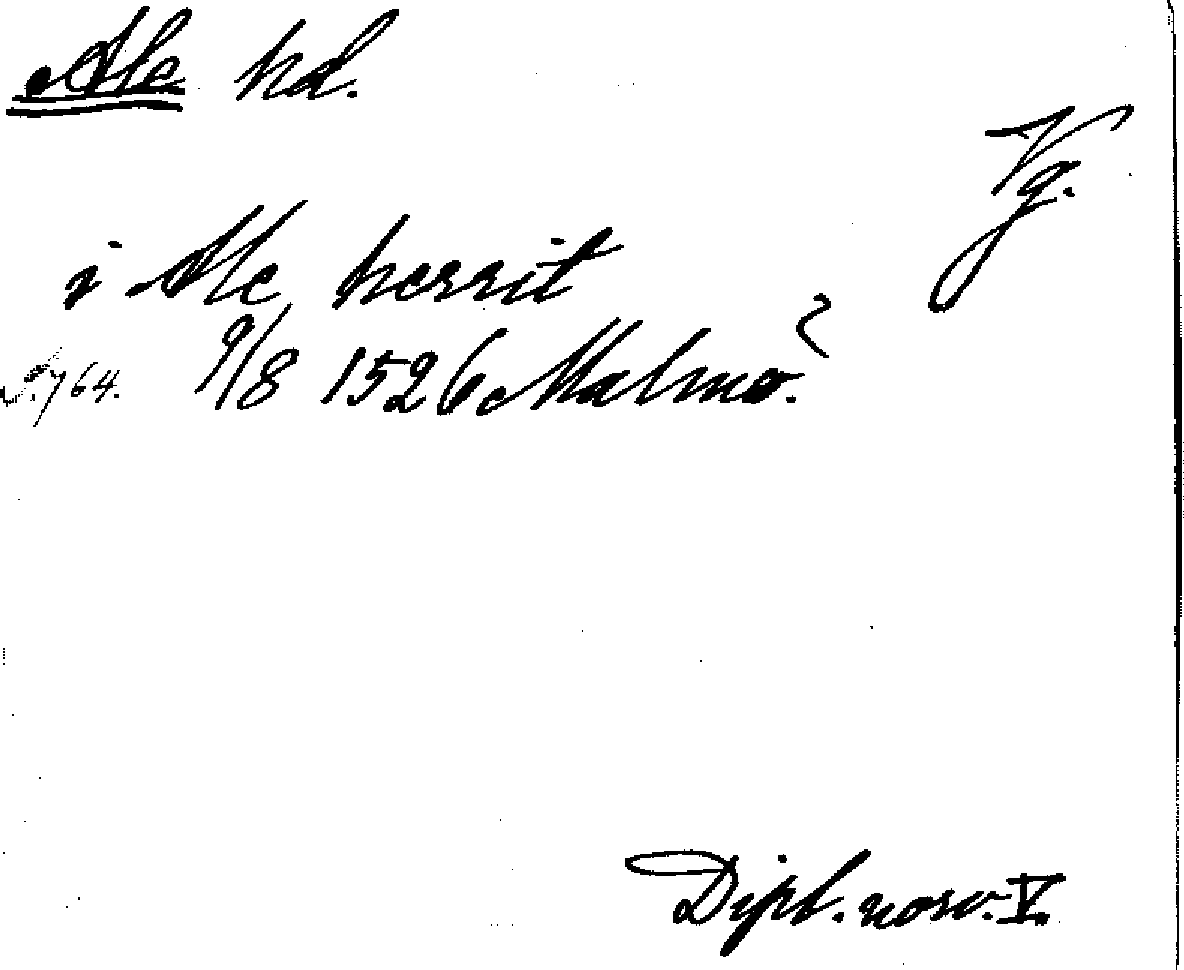 Ale hd.
Vg.
i Ale herrit
S. 764. 9/8 1526 Malmø.
Dipl. norv. V.